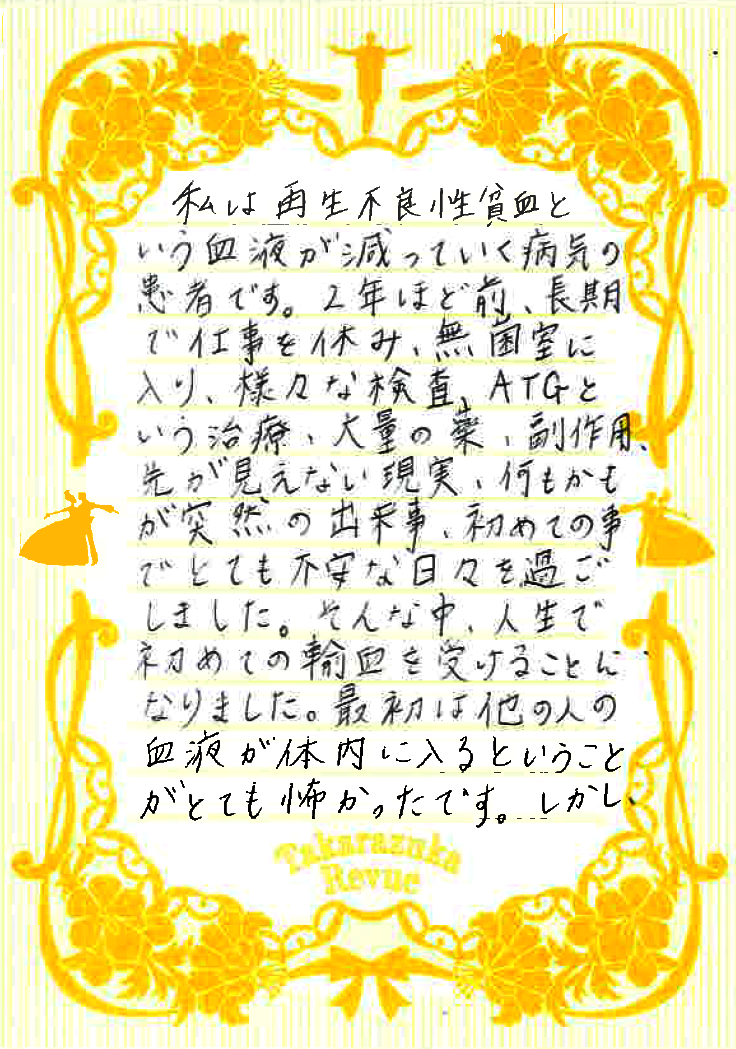 私は再生不良性貧血と
いう血液が減っていく病気の
患者です。2年ほど前、長期
で仕事を休み、無菌室に
入り、様々な検査、ATGと
いう治療、大量の薬、副作用、
先が見えない現実、何もかも
が突然の出来事、初めての事
でとても不安な日々を過ご
しました。そんな中、人生で
初めての輸血を受けることに
なりました。最初は他の人の
血液が体内に入るということ
がとても怖かったです。しかし、
Takarazuka
Revue